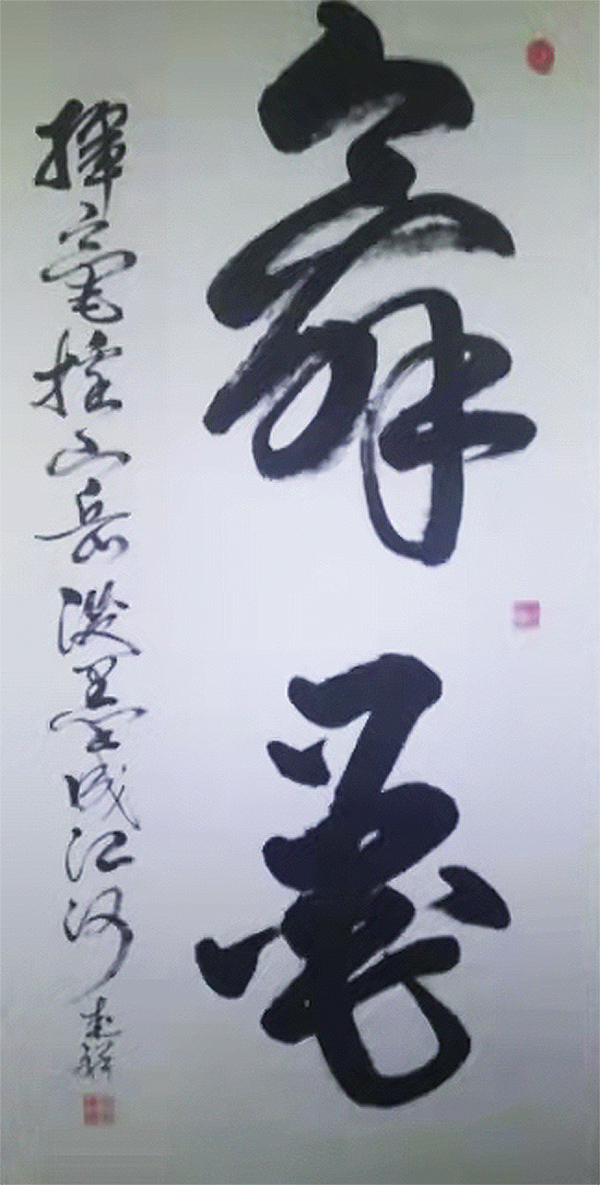 舞墨
揮毫拄山岳潑墨成江河